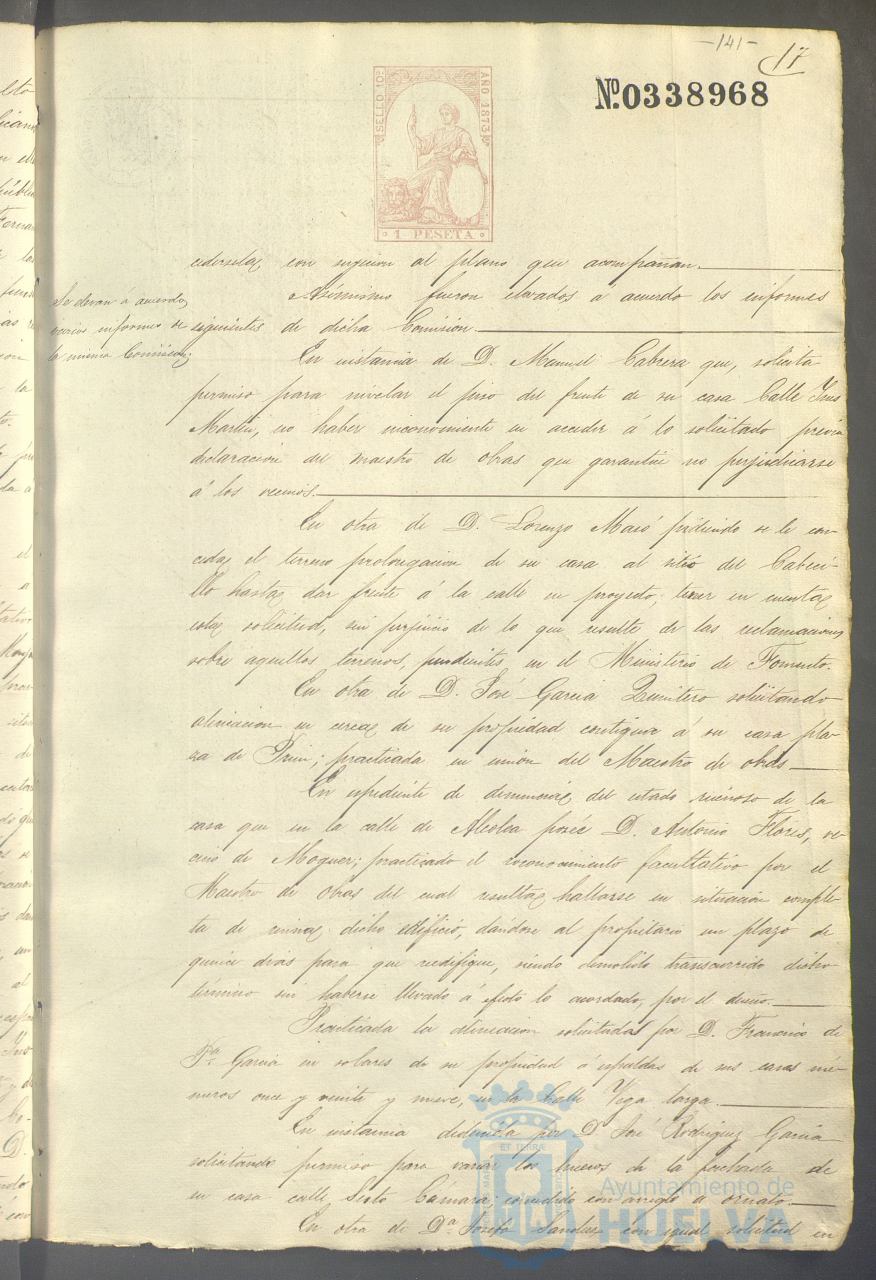 -141-
17
Nº.0338968
SELLO 10º
AÑO 1873
1 PESETA
cedersele con sugecion al plano que acompañan.
Se elevan á acuerdo
varios informes de
la misma Comision.
Asimismo fueron elevados a acuerdo los informes
siguientes de dicha Comision.
En instancia de D. Manuel Cabrera que, solicita
permiso para nivelar el piso del frente de su casa Calle
Martin, no haber inconveniente en acceder á lo solicitado previa
declaracion del maestro de obras que garantice no perjudicarse
á los vecinos.
En otra de D. Lorenzo Macó pidiendo se le con-
ceda el terreno prolongacion de su casa al sitio del Cabeci-
llo hasta dar frente á la calle en proyecto; tener en cuenta
esta solicitud, sin perjuicio de lo que resulte de las reclamaciones
sobre aquellos terrenos, pendientes en el Ministerio de Fomento.
En otra de D. José Garcia Quintero solicitando
alineacion en cerca de su propiedad contigua á su casa pla-
za de Prim; practicada en union del Maestro de obras
En espediente de denuncia del estado ruinoso de la
casa que en la calle de Alcolea poséé D. Antonio Flores, ve-
cino de Moguer; practicado el reconocimiento facultativo por el
Maestro de obras del cual resulta hallarse en situacion comple-
ta de ruina dicho edificio, dándose al propietario un plazo de
quince dias para que reedifique, siendo demolido transcurrido dicho
término sin haberse llevado á efecto lo acordado, por el dueño.
Practicada la alineacion solicitada por D. Francisco de
P.ª Garcia en solares de su propiedad á espaldas de sus casas nú-
meros once y veinte y nueve, en la Calle Vega larga.
En instancia deducida por D. José Rodriguez Garcia
solicitando permiso para variar los huecos de la fachada de
su casa calle Sisto Cámara; concedido con arreglo á ornato.
En otra de D.ª Josefa Sanchez con igual solicitud en
Ayuntamiento de
HUELVA